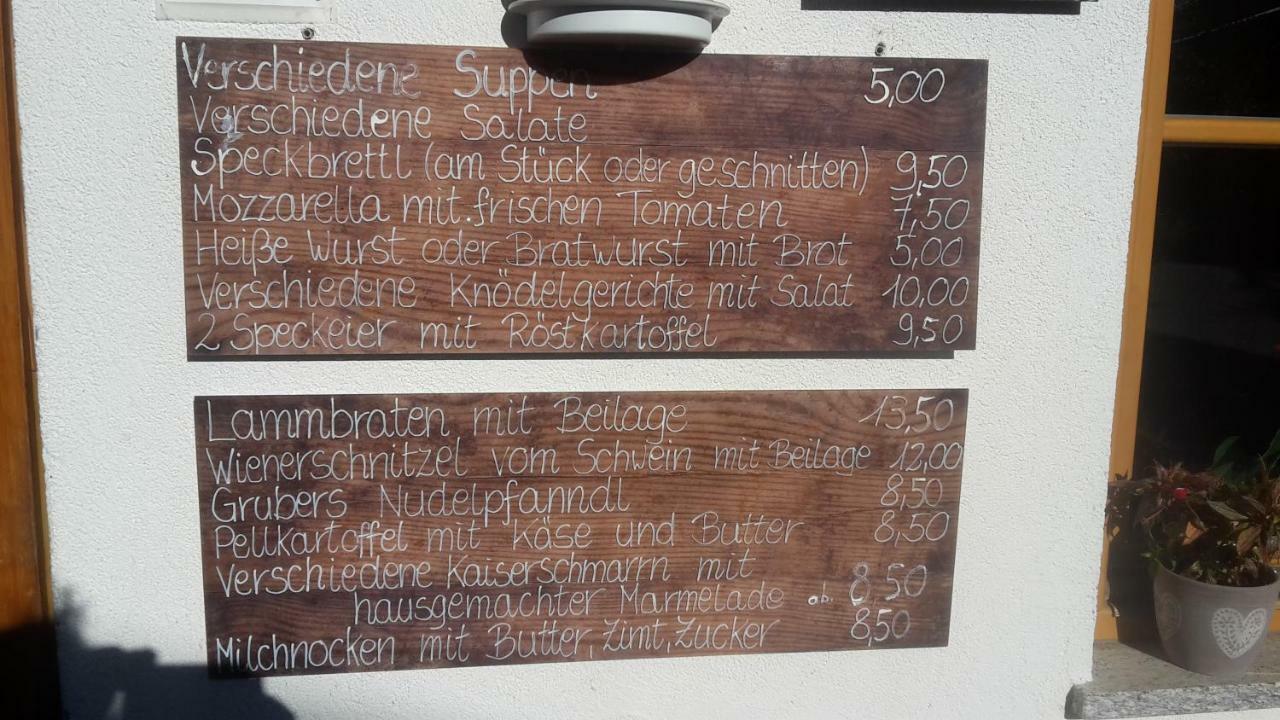 Verschiedene Suppen 5,00
Verschiedene Salate
Speckbrettl (am Stück oder geschnitten) 9,50
Mozzarella mit frischen Tomaten 7,50
Heiße Wurst oder Bratwurst mit Brot 5,00
Verschiedene Knödelgerichte mit Salat 10,00
2 Speckeier mit Röstkartoffel 9,50
Lammbraten mit Beilage 13,50
Wienerschnitzel vom Schwein mit Beilage 12,00
Grubers Nudelpfanndl 8,50
Pellkartoffel mit Käse und Butter 8,50
Verschiedene Kaiserschmarrn mit
hausgemachter Marmelade ab. 8,50
Milchnocken mit Butter, Zimt, Zucker 8,50